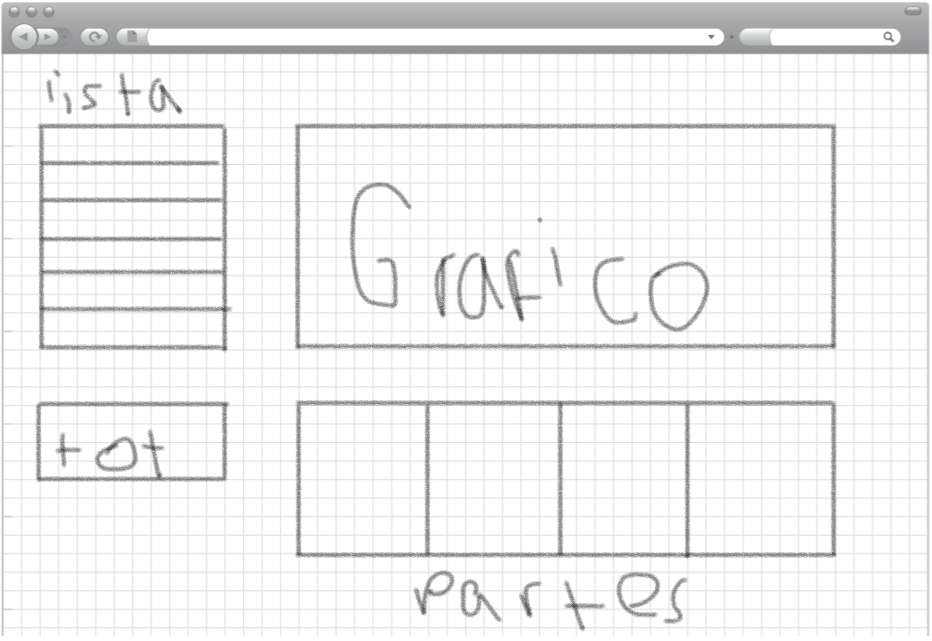 lista
Grafico
tot
partes